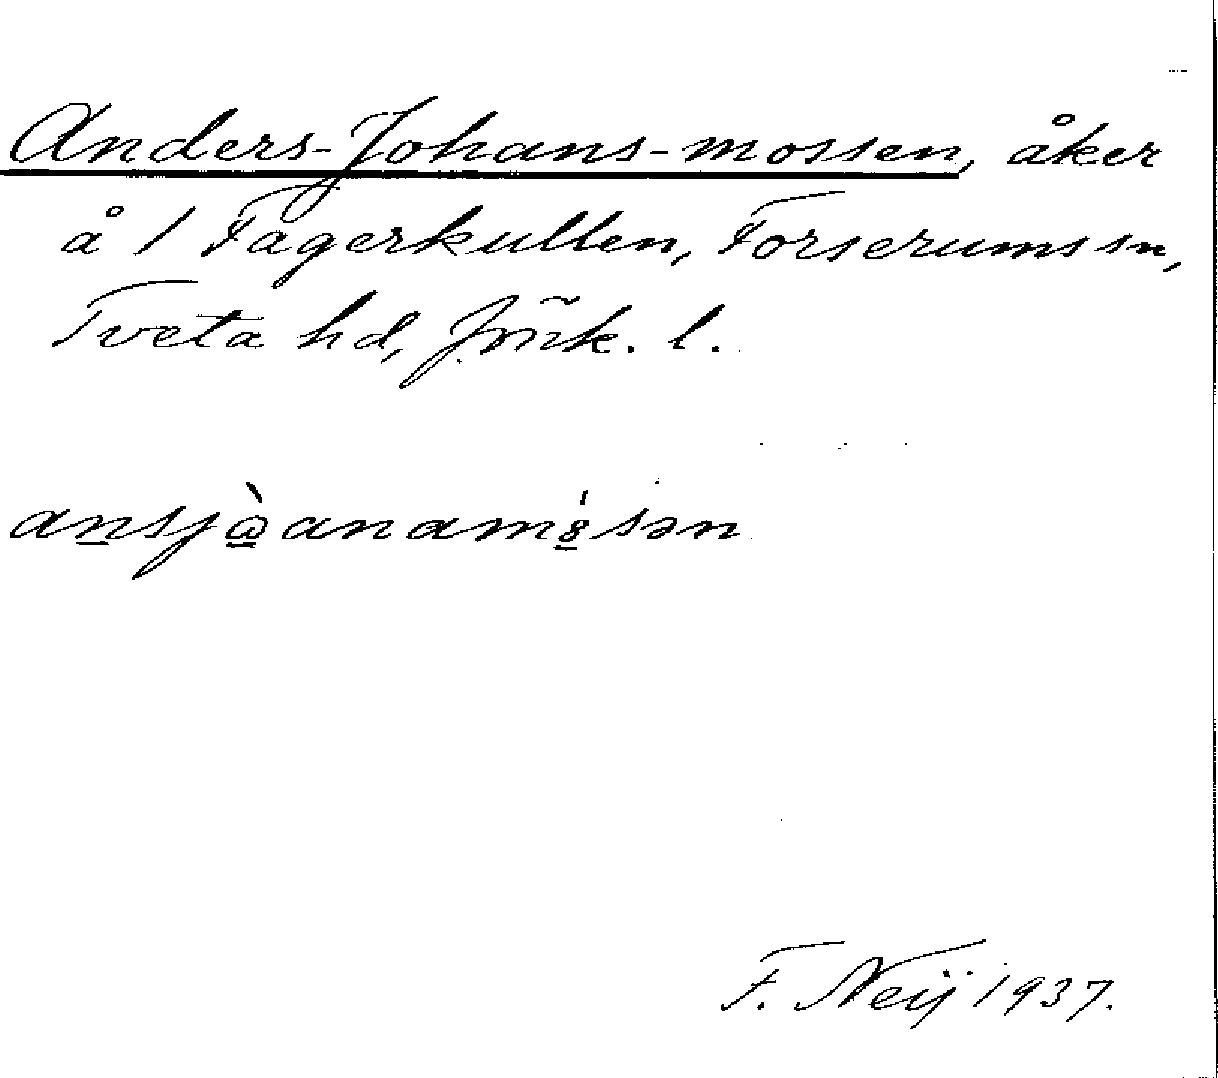 Anders-Johans-mossen, åker
å 1 Fagerkullen, Forserums sn,
Tveta hd, Jönk. l.
F. Neij 1937.